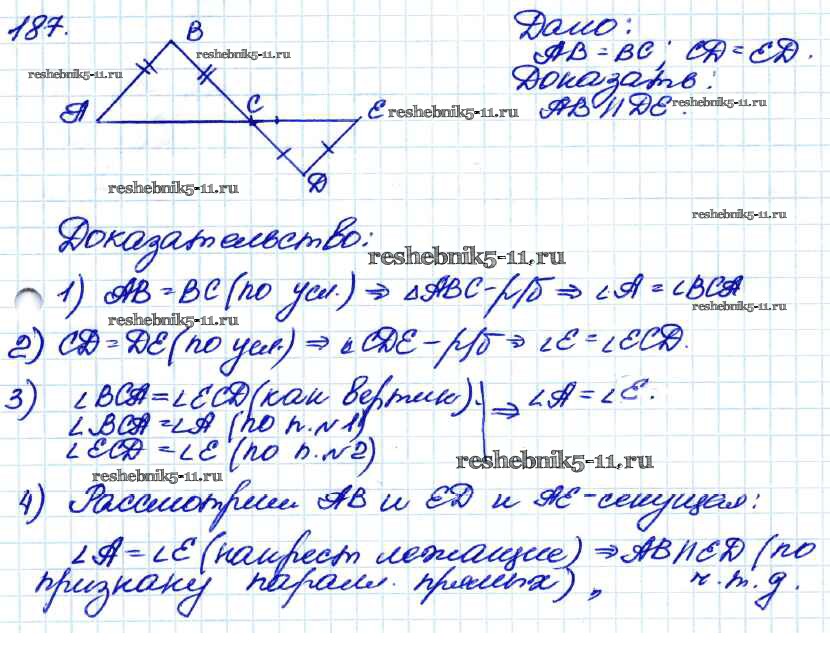 187.
B
Дано:
reshebnik5-11.ru
AB = BC; CD = ED.
reshebnik5-11.ru
Доказать:
A
C
E
reshebnik5-11.ru
AB || DE.
reshebnik5-11.ru
D
reshebnik5-11.ru
reshebnik5-11.ru
Доказательство:
reshebnik5-11.ru
1) AB = BC (по усл.) ⇒ △ABC – р/б ⇒ ∠A = ∠BCA
reshebnik5-11.ru
reshebnik5-11.ru
2) CD = DE (по усл.) ⇒ △CDE – р/б ⇒ ∠E = ∠ECD.
3) ∠BCA = ∠ECD (как вертик.) ⇒ ∠A = ∠E.
∠BCA = ∠A (по п. №1)
∠ECD = ∠E (по п. №2)
reshebnik5-11.ru
reshebnik5-11.ru
4) Рассмотрим AB и ED и AE – секущая:
∠A = ∠E (накрест лежащие) ⇒ AB || ED (по
признаку паралл. прямых), ч.т.д.